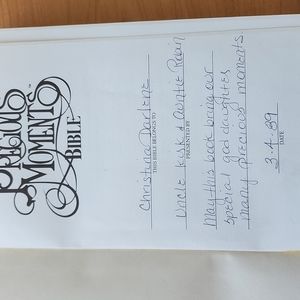 PRECIOUS
MOMENTS™
BIBLE
Christina Darlene
THIS BIBLE BELONGS TO
Uncle Kirk & Auntie Robin
PRESENTED BY
May this book bring our
special god daughter
many precious moments
3-4-89
DATE